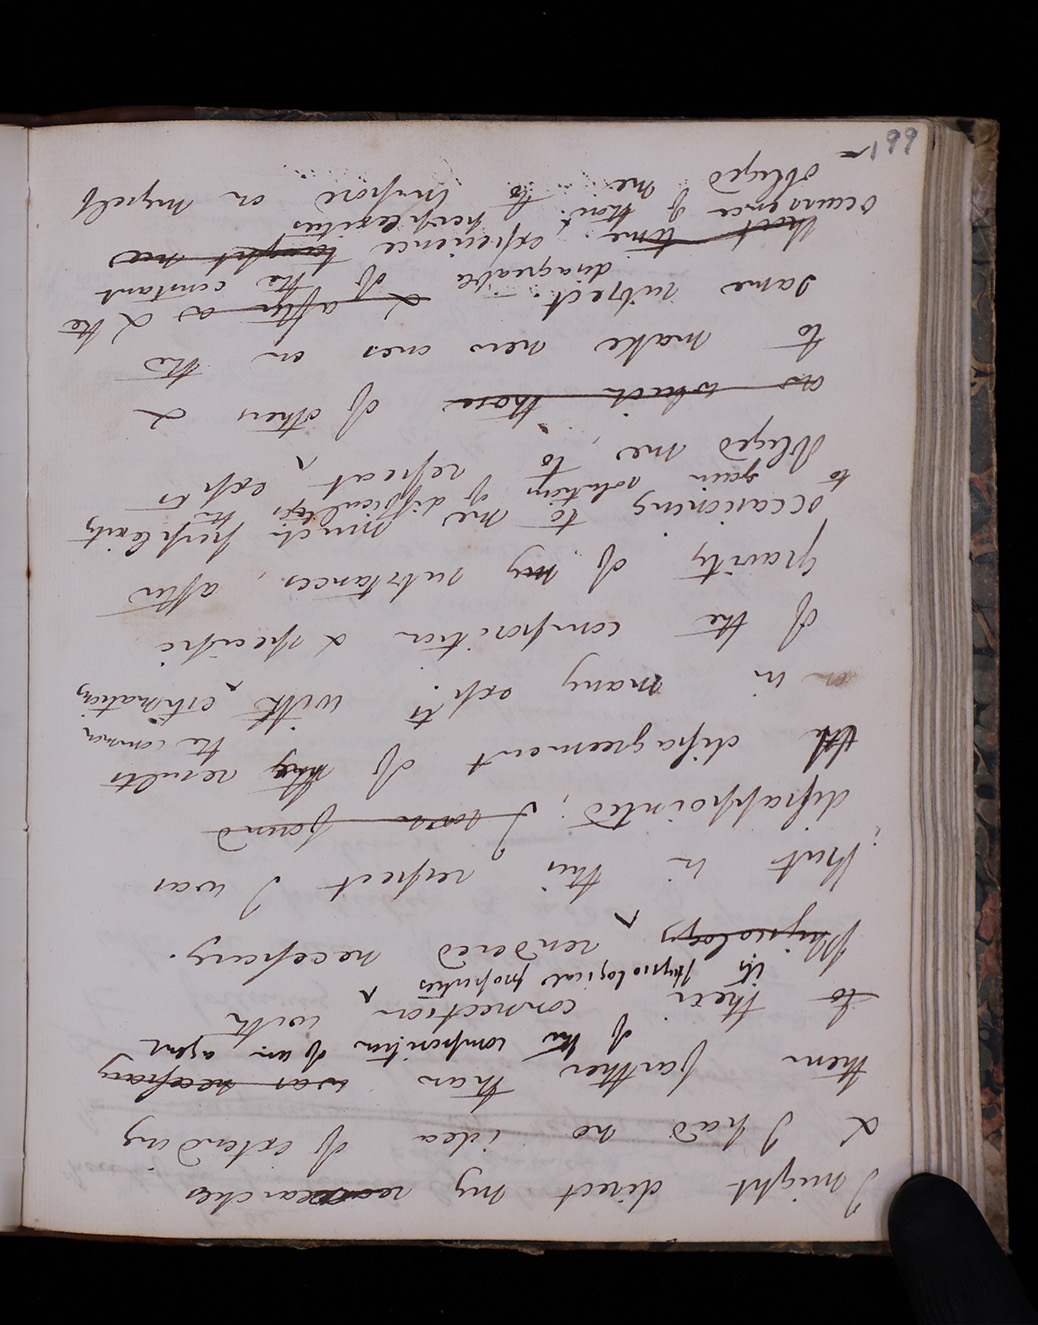 I might direct my researches
& I had no idea of extending
them farther than was necessary
of the composition of an agent
to their connection with
its physiological properties
Physiology rendered necessary.
But in this respect I was
disappointed; I soon found
the disagreement of my results
the common
in many expts. with estimations
of the composition & specific
gravity of my substances, after
occasioning to me much perplexity
to gain solutions of difficulties the
obliged me, to repeat expts
as which those of others &
to make new ones on the
same subject. & after as & the
disagreeable of the constant
that time experience taught me
occurrence of their perplexities
obliged me to impose on myself
199